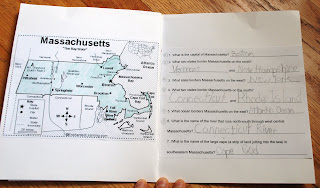 Massachusetts
"The Bay State"
Atlantic
Ocean
Massachusetts
Bay
Boston
Worcester
Springfield
Brockton
Cape Cod
Bay
1. What is the capital of Massachusetts? Boston
2. What two states border Massachusetts on the north?
Vermont and New Hampshire
3. What state borders Massachusetts on the west? New York
4. What two states border Massachusetts on the south?
Connecticut and Rhode Island
5. What ocean borders Massachusetts on the east? Atlantic Ocean
6. What is the name of the river that runs north/south through west central
Massachusetts? Connecticut River
7. What is the name of the large cape (a strip of land jutting into the sea) in
southeastern Massachusetts? Cape Cod